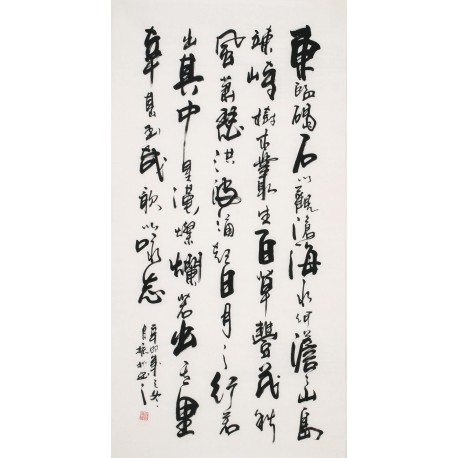 東臨碣石以觀滄海水何澹々山島
竦峙樹木叢生百草豐茂秋
風蕭瑟洪波涌起日月之行若
出其中星漢燦爛若出其里
幸甚至哉歌以咏志
辛卯年之冬